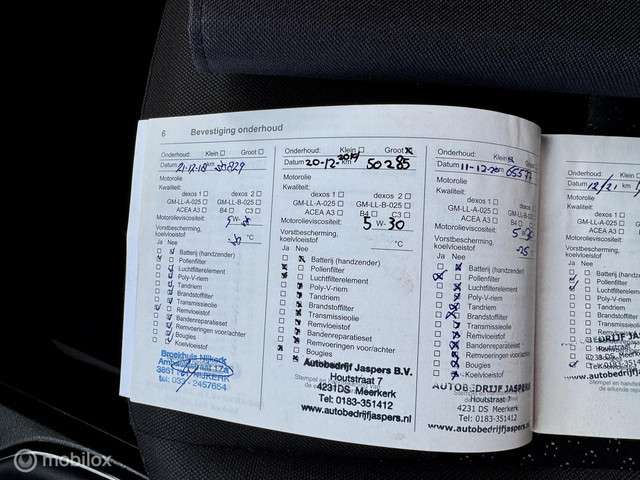 6 Bevestiging onderhoud
Onderhoud: Klein Groot
Datum 21-12-18 km
Motorolie
Kwaliteit:
dexos 1 dexos 2
GM-LL-A-025 GM-LL-B-025
ACEA A3 B4 C3
Motorolieviscositeit: 5 W 30
Vorstbescherming.
koelvloeistof -30 °C
Ja Nee
Batterij (handzender)
Pollenfilter
Luchtfilterelement
Poly-V-riem
Tandriem
Brandstoffilter
Transmissieolie
Remvloeistof
Bandenreparatieset
Remvoeringen voor/achter
Bougies
Koelvloeistof
Broekhuis Nijkerk
Ambachtsstraat 17a
3861 NIJKERK
tel: 033 - 2457654
Onderhoud: Klein Groot
Datum 20-12-2019 km 50285
Motorolie
Kwaliteit:
dexos 1 dexos 2
GM-LL-A-025 GM-LL-B-025
ACEA A3 B4 C3
Motorolieviscositeit: 5 W 30
Vorstbescherming,
koelvloeistof °C
Ja Nee
Batterij (handzender)
Pollenfilter
Luchtfilterelement
Poly-V-riem
Tandriem
Brandstoffilter
Transmissieolie
Remvloeistof
Bandenreparatieset
Remvoeringen voor/achter
Bougies
Autobedrijf Jaspers B.V.
Houtstraat 7
4231 DS Meerkerk
Tel: 0183-351412
www.autobedrijfjaspers.nl
Onderhoud: Klein Groot
Datum 11-12-20 km
Motorolie
Kwaliteit:
dexos 1 dexos 2
GM-LL-A-025 GM-LL-B-025
ACEA A3 B4 C3
Motorolieviscositeit: 5 W 30
Vorstbescherming,
koelvloeistof -25 °C
Ja Nee
Batterij (handzender)
Pollenfilter
Luchtfilterelement
Poly-V-riem
Tandriem
Brandstoffilter
Transmissieolie
Remvloeistof
Bandenreparatieset
Remvoeringen voor/achter
Bougies
AUTOBEDRIJF JASPERS
Houtstraat 7
4231 DS Meerkerk
Tel: 0183-351412
www.autobedrijfjaspers.nl
Onderhoud: Klein
Datum 12/21 km
Motorolie
Kwaliteit:
dexos 1
GM-LL-A-025
ACEA A3
Motorolieviscositeit:
Vorstbescherming,
koelvloeistof
Ja Nee
Batterij (handzender)
Pollenfilter
Luchtfilterelement
Poly-V-riem
Tandriem
Brandstoffilter
Transmissieolie
Remvloeistof
Bandenreparatieset
mobilox